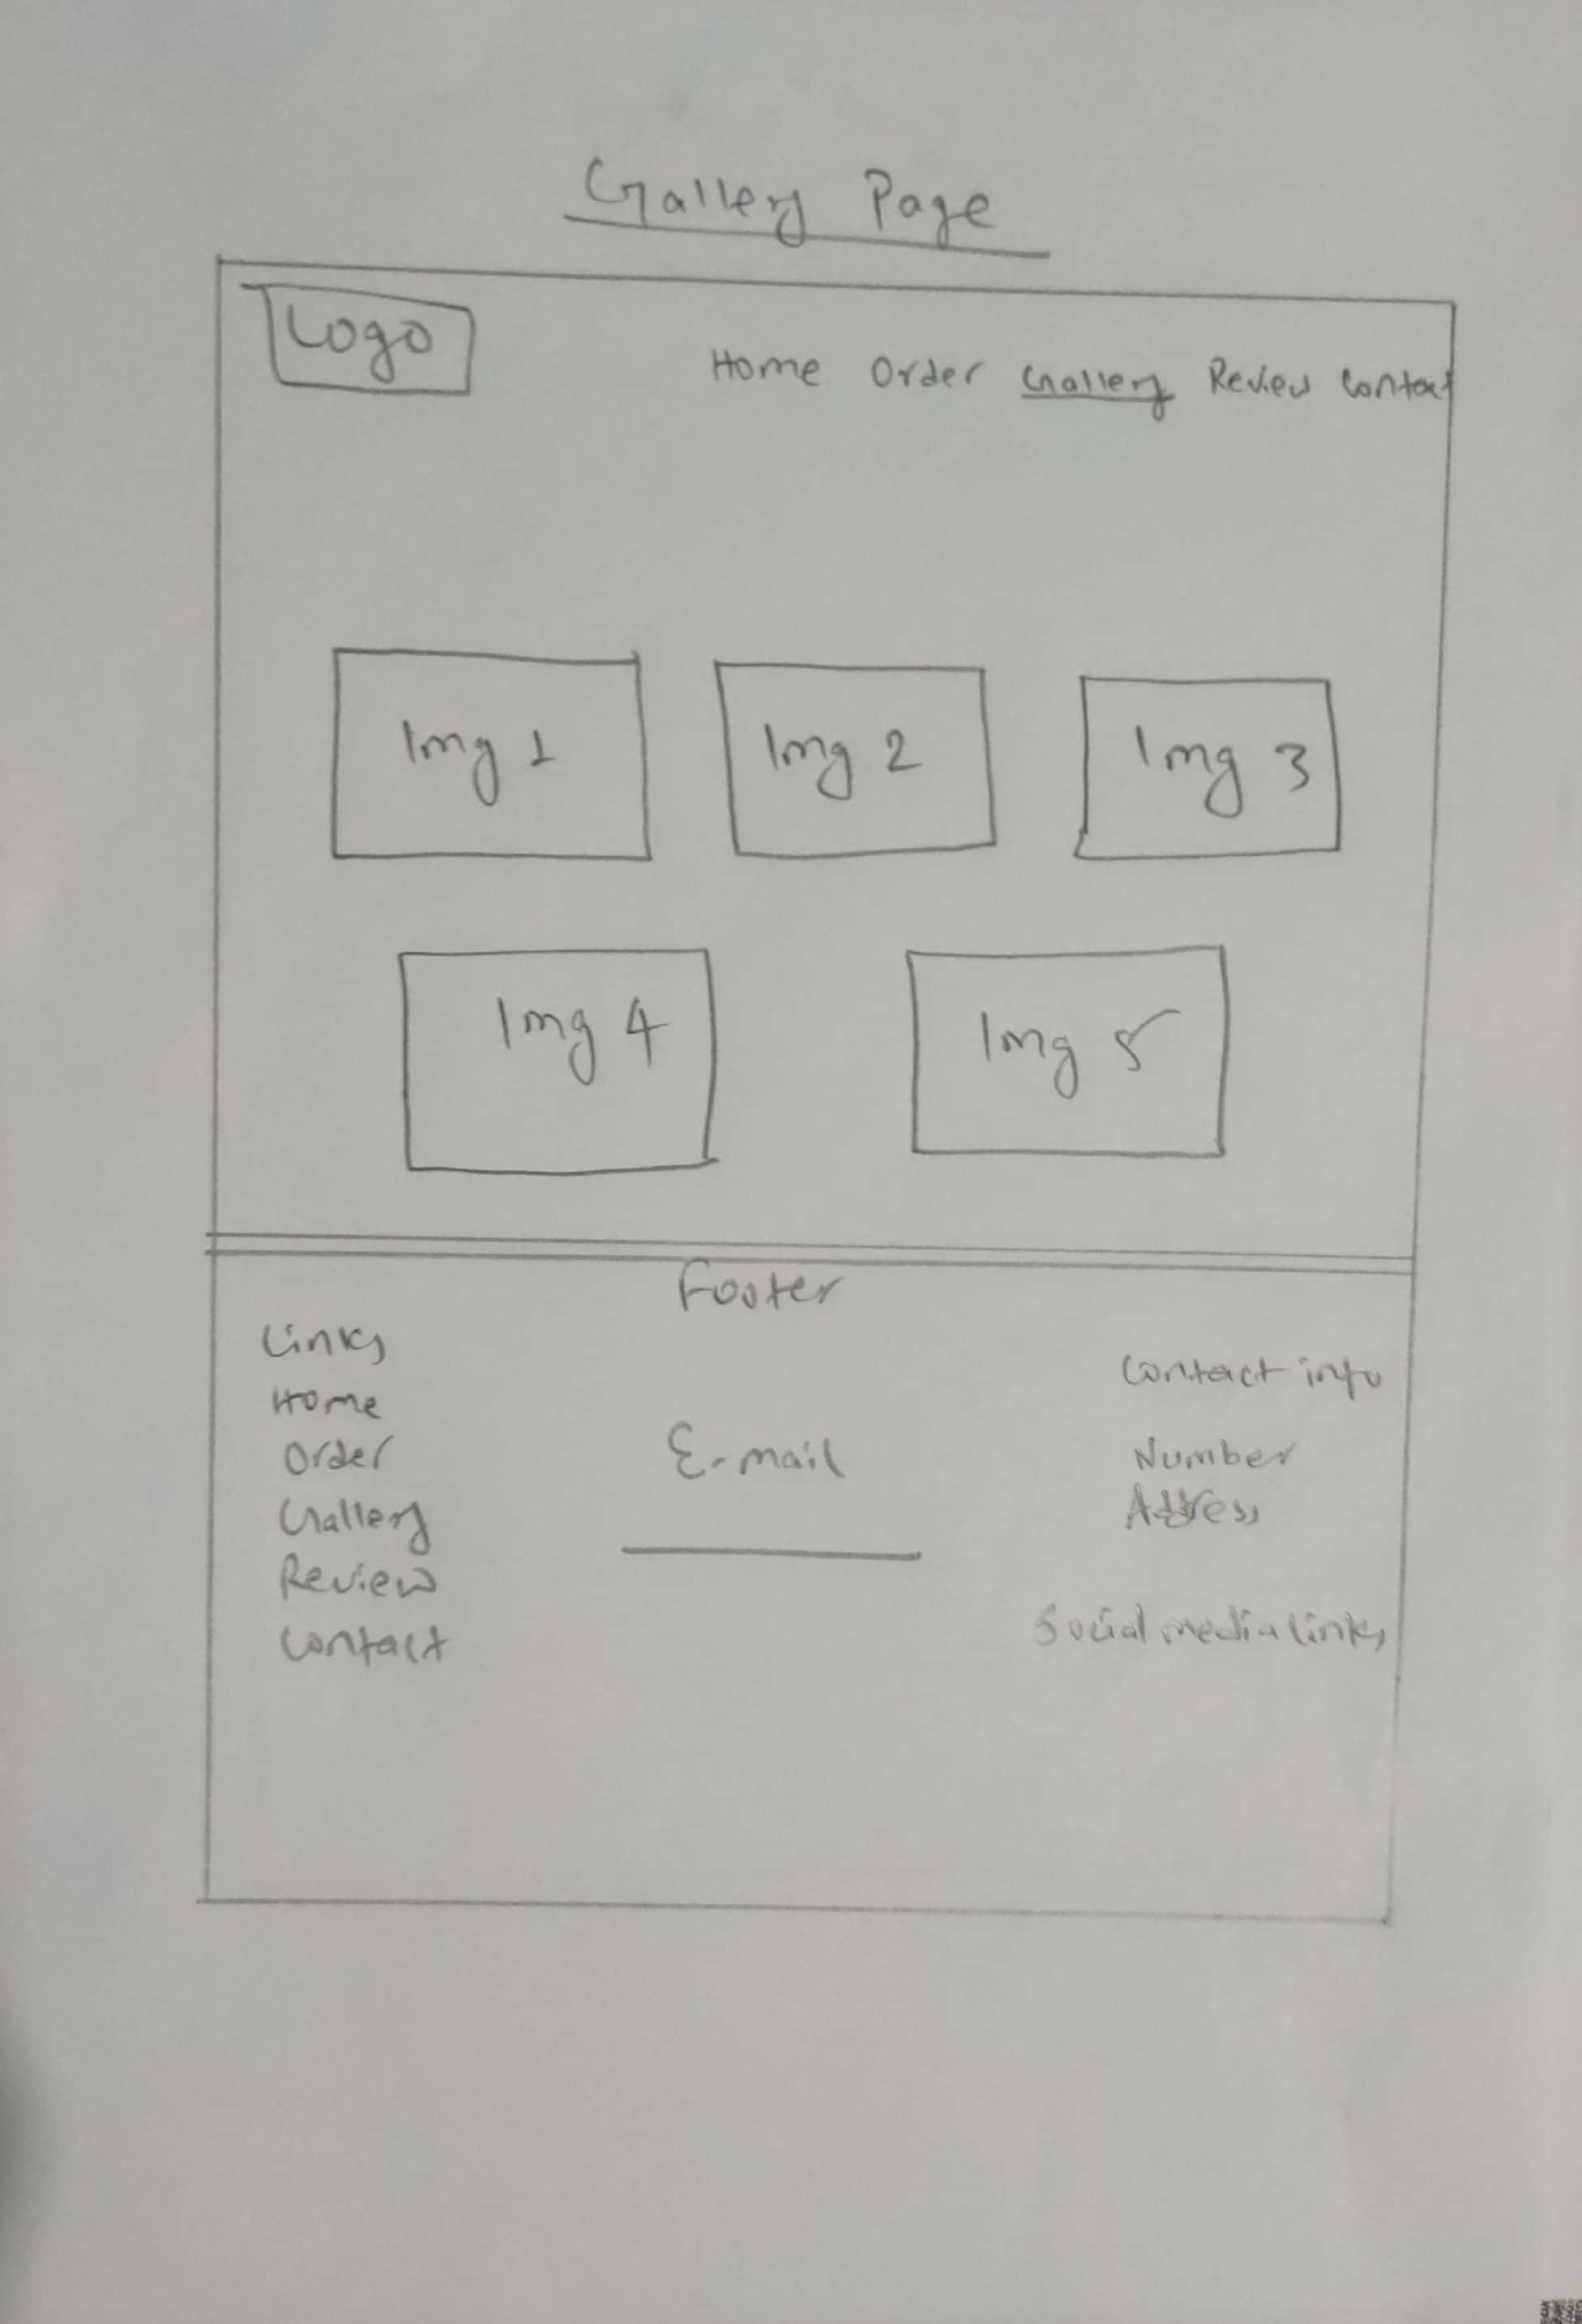 Gallery Page
Logo
Home Order Gallery Review Contact
Img 1 Img 2 Img 3
Img 4 Img 5
Footer
Links
Home
Order
Gallery
Review
Contact
E-mail
Contact info
Number
Address
Social media links